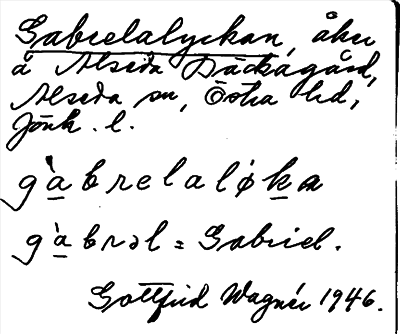 Gabrielalyckan, åker
å Alseda Bäckagård,
Alseda sn, Östra hd,
Jönk. l.
gàbrelaløka
gàbrəl = Gabriel.
Gottfrid Wagnér 1946.